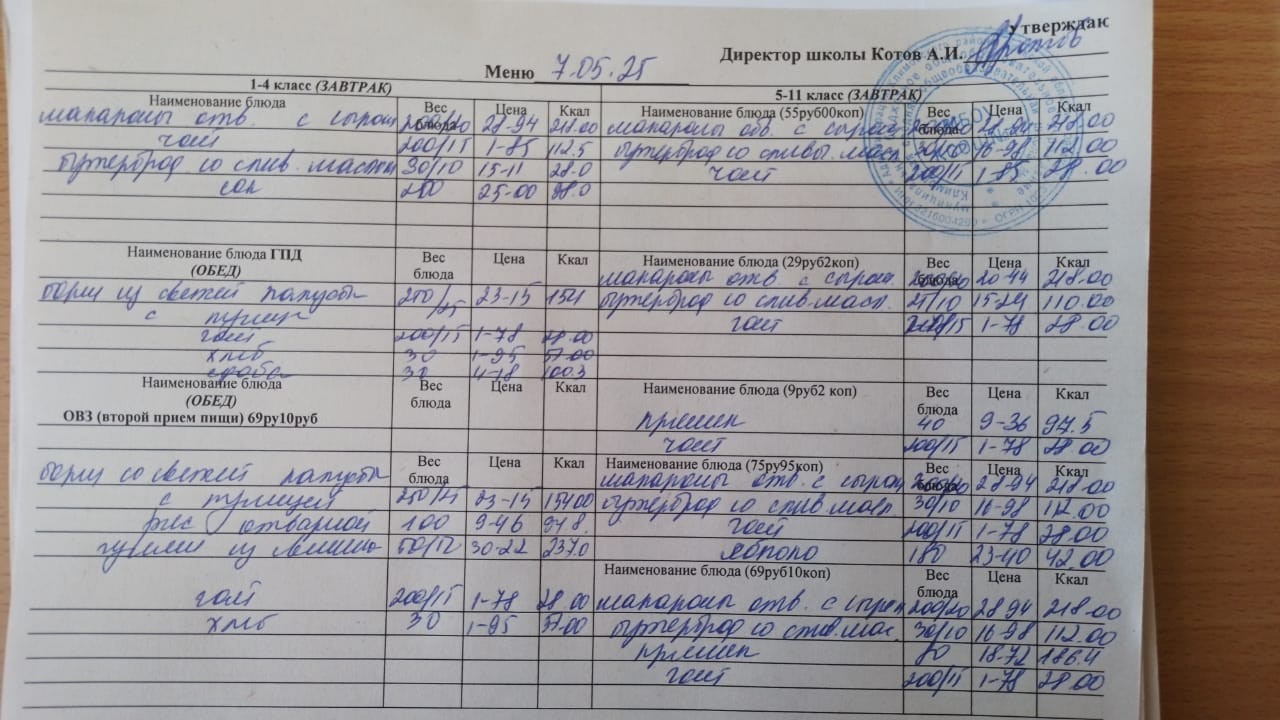 Утверждаю
Директор школы Котов А.И.
Меню 7.05.25
1-4 класс (ЗАВТРАК)
Наименование блюда Вес блюда Цена Ккал
макароны отв. с сыром 200/20 28-94 218.00
чай 200/15 1-85 112.5
бутерброд со слив. маслом 30/10 15-11 28.0
сок 200 25-00 98.0
Наименование блюда ГПД (ОБЕД) Вес блюда Цена Ккал
борщ из свежей капусты 250/25 23-15 154
с птицей
чай 200/15 1-78 28.00
хлеб 30 1-95 57.00
сдоба 30 4-18 100.3
Наименование блюда Вес блюда Цена Ккал
(ОБЕД)
ОВЗ (второй прием пищи) 69ру10руб
борщ со свежей капусты Вес блюда Цена Ккал
с птицей 250/25 23-15 154.00
рис отварной 100 9-46 94.8
гуляш из 50/50 30-22 237.0
чай 200/15 1-78 28.00
хлеб 30 1-95 57.00
5-11 класс (ЗАВТРАК)
Наименование блюда (55руб600коп) Вес блюда Цена Ккал
макароны отв. с сыром 28-94 218.00
бутерброд со слив. масл 16-98 112.00
чай 200/15 1-85 28.00
Наименование блюда (29руб2коп) Вес блюда Цена Ккал
макароны отв. с сыром 20-44 218.00
бутерброд со слив.масл. 25/10 15-24 110.00
чай 200/15 1-78 28.00
Наименование блюда (9руб2 коп) Вес блюда Цена Ккал
40 9-36 97.5
чай 200/15 1-78 28.00
Наименование блюда (75ру95коп) Вес блюда Цена Ккал
макароны отв. с сыром 28-94 218.00
бутерброд со слив масл 30/10 16-98 112.00
чай 200/15 1-78 28.00
яблоко 180 23-40 42.00
Наименование блюда (69руб10коп) Вес блюда Цена Ккал
макароны отв. с сыром 200/20 28-94 218.00
бутерброд со слив.мас. 30/10 16-98 112.00
80 18-72 186.4
чай 200/15 1-78 28.00